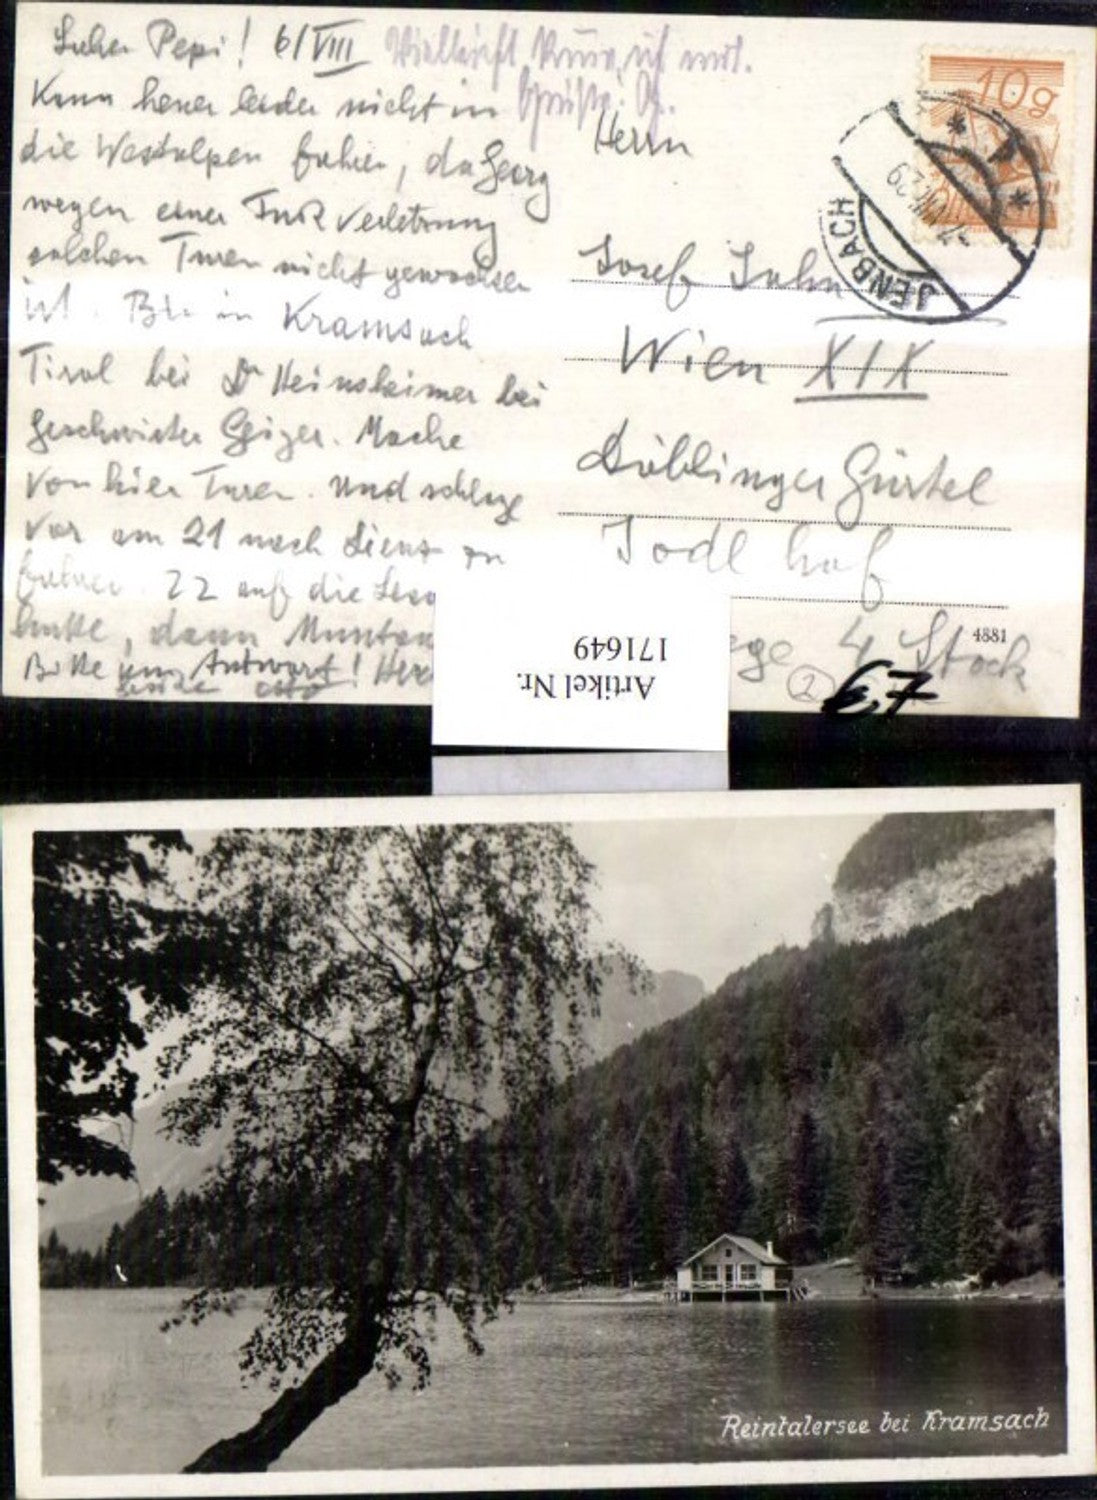 Lieber Pepi! 6/VIII
Vielleicht komm ich mit.
Grüße. G.
Kann heuer leider nicht in
die Westalpen fahren, da Georg
wegen einer Fuß Verletzung
solchen Turen nicht gewachsen
ist. Bin in Kramsach
Tirol bei Dr Heinsheimer bei
Geschwister Geiger. Mache
von hier Turen. Und schlage
vor am 21 nach Lienz zu
fahren. 22 auf die
dann
Bitte um Antwort!
beide Otto
10g
JENBACH
7.VIII.29
Herrn
Josef Jahn
Wien XIX
Döblinger Gürtel
Jodl hof
4 Stock
4881
2
€7
Artikel Nr.
171649
Reintalersee bei Kramsach